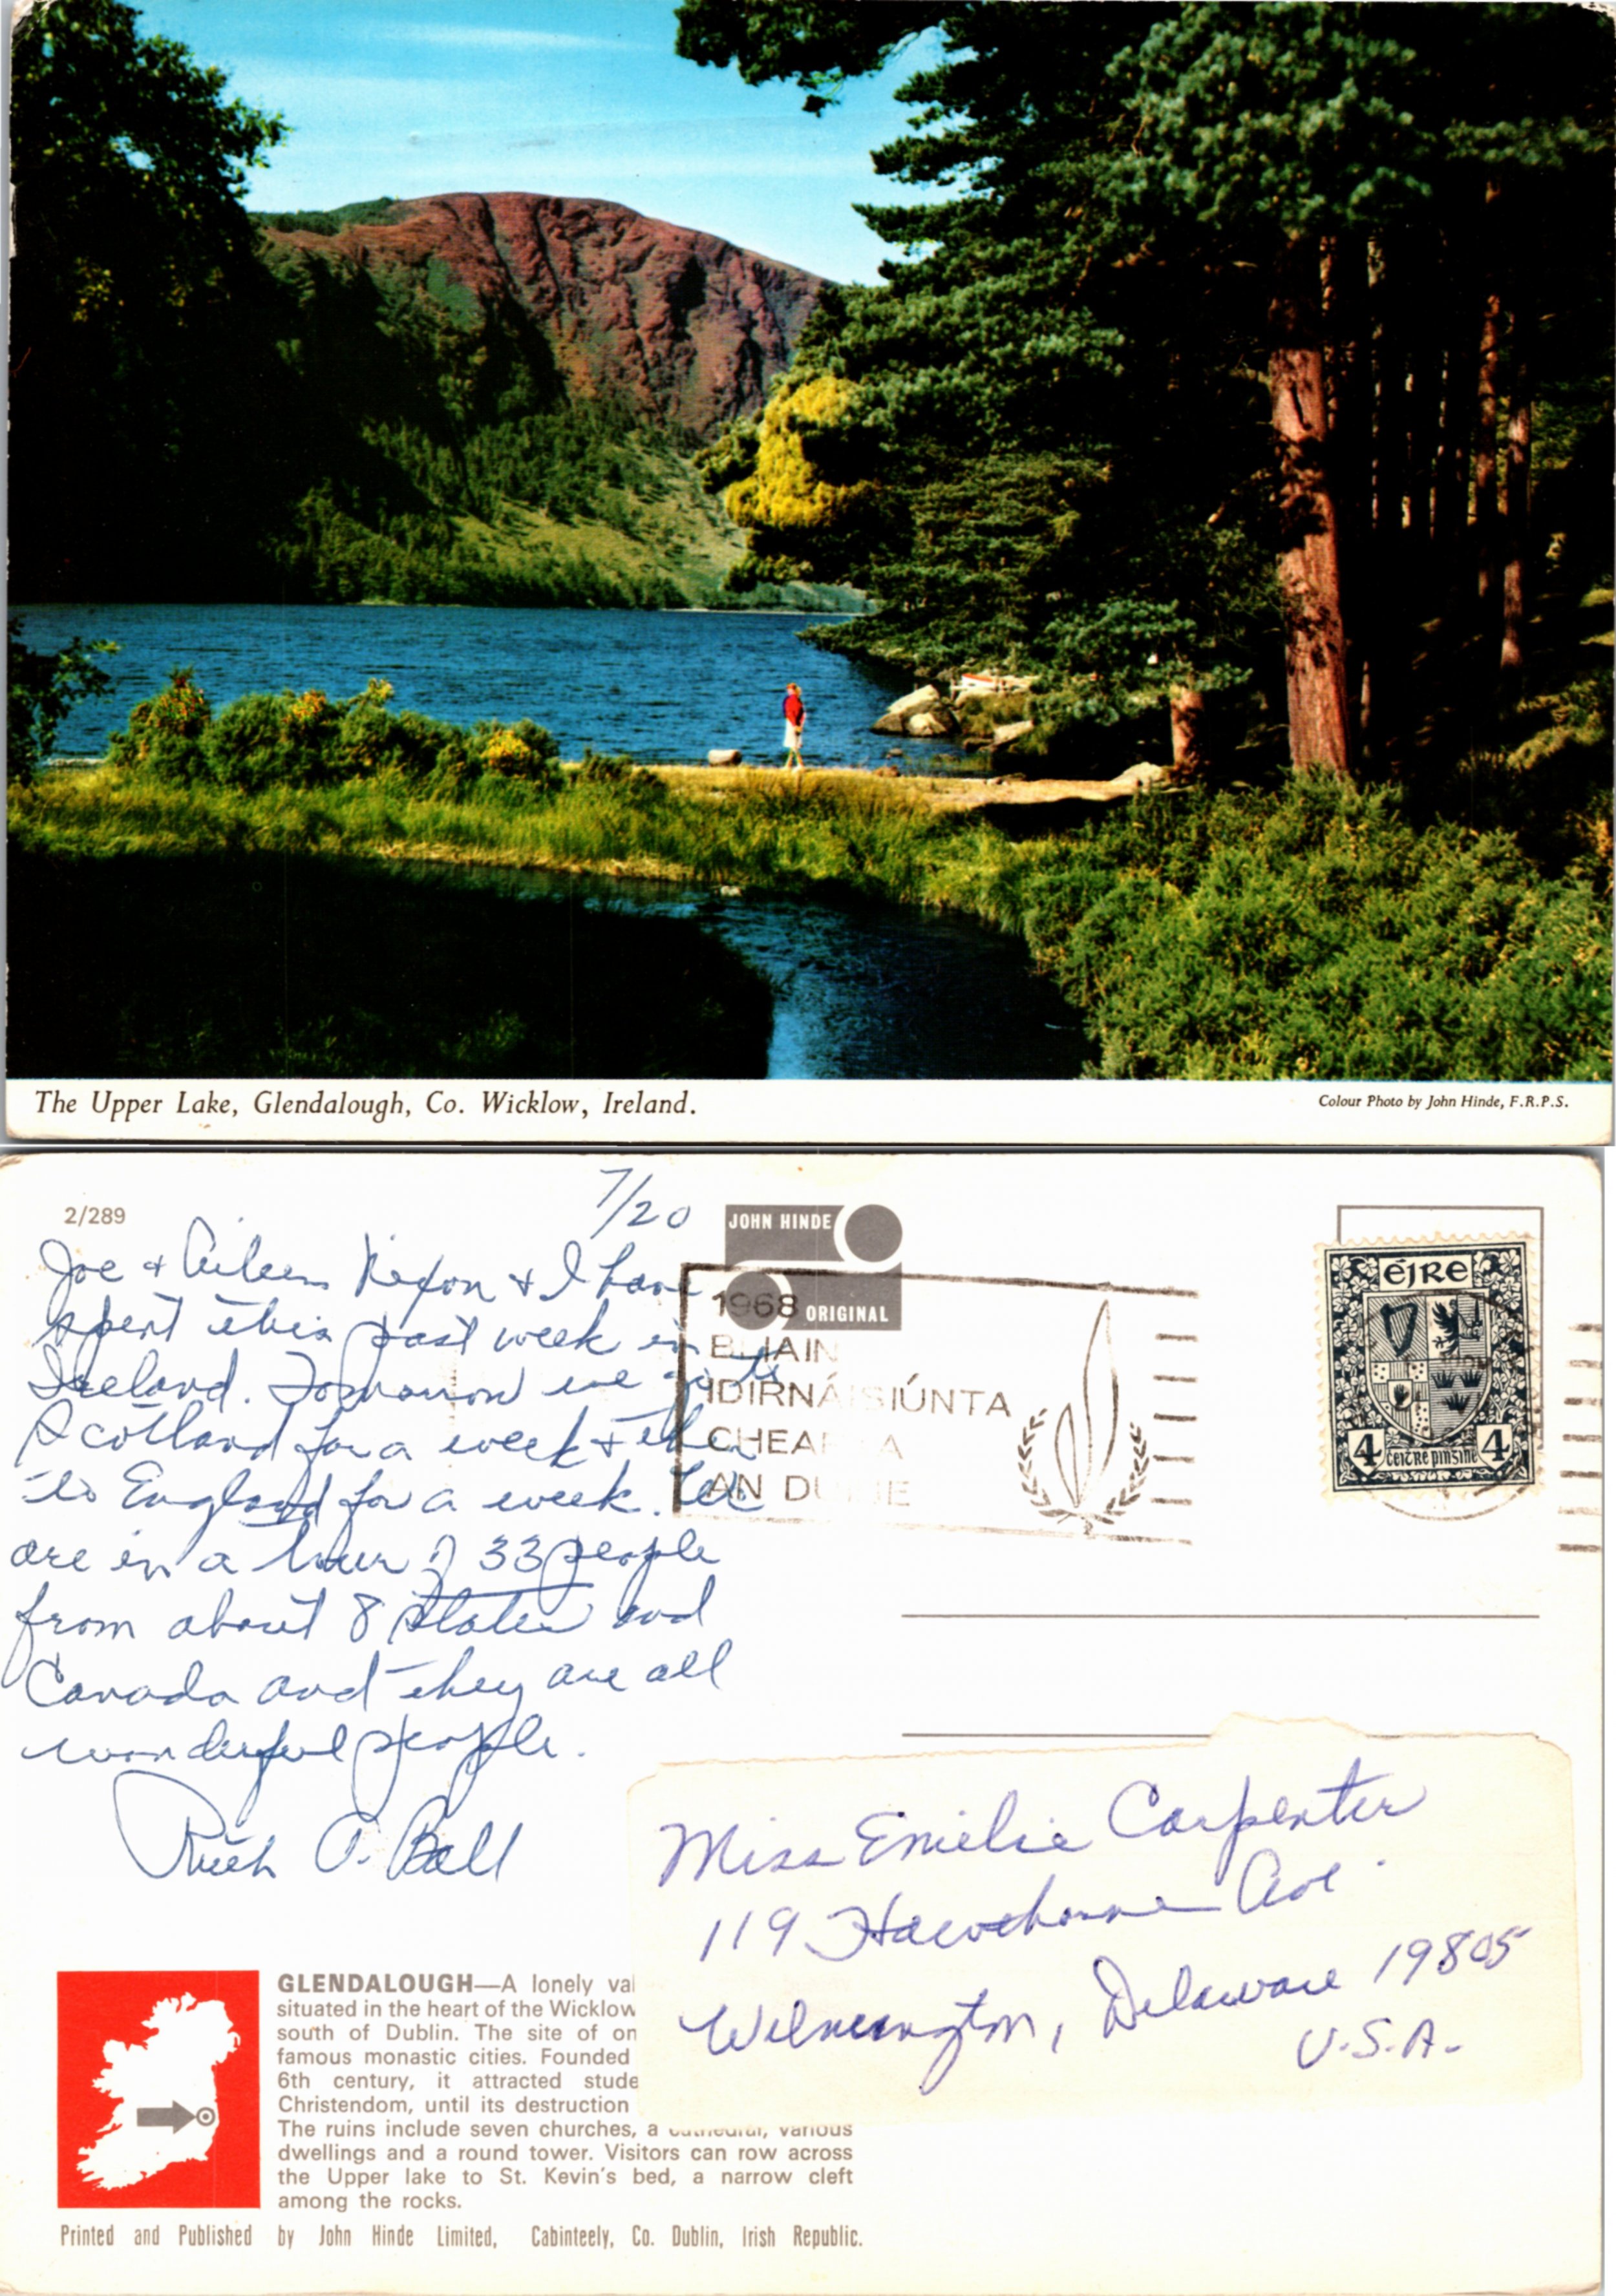 The Upper Lake, Glendalough, Co. Wicklow, Ireland.
Colour Photo by John Hinde, F.R.P.S.
2/289
7/20
Joe & Aileen Nixon & I have
spent this past week in
Ireland. Tomorrow we go to
Scotland for a week & then
to England for a week. We
are in a tour of 33 people
from about 8 states and
Canada and they are all
wonderful people.
Ruth A. Ball
JOHN HINDE
ORIGINAL
1968
BLIAIN
IDIRNÁISIÚNTA
CHEARTA
AN DUINE
ÉIRE
4 ceitre pinsine 4
Miss Emilie Carpenter
119 Hawthorne Ave.
Wilmington, Delaware 19805
U.S.A.
GLENDALOUGH—A lonely val
situated in the heart of the Wicklow
south of Dublin. The site of on
famous monastic cities. Founded
6th century, it attracted stude
Christendom, until its destruction
The ruins include seven churches, a cathedral, various
dwellings and a round tower. Visitors can row across
the Upper lake to St. Kevin's bed, a narrow cleft
among the rocks.
Printed and Published by John Hinde Limited, Cabinteely, Co. Dublin, Irish Republic.